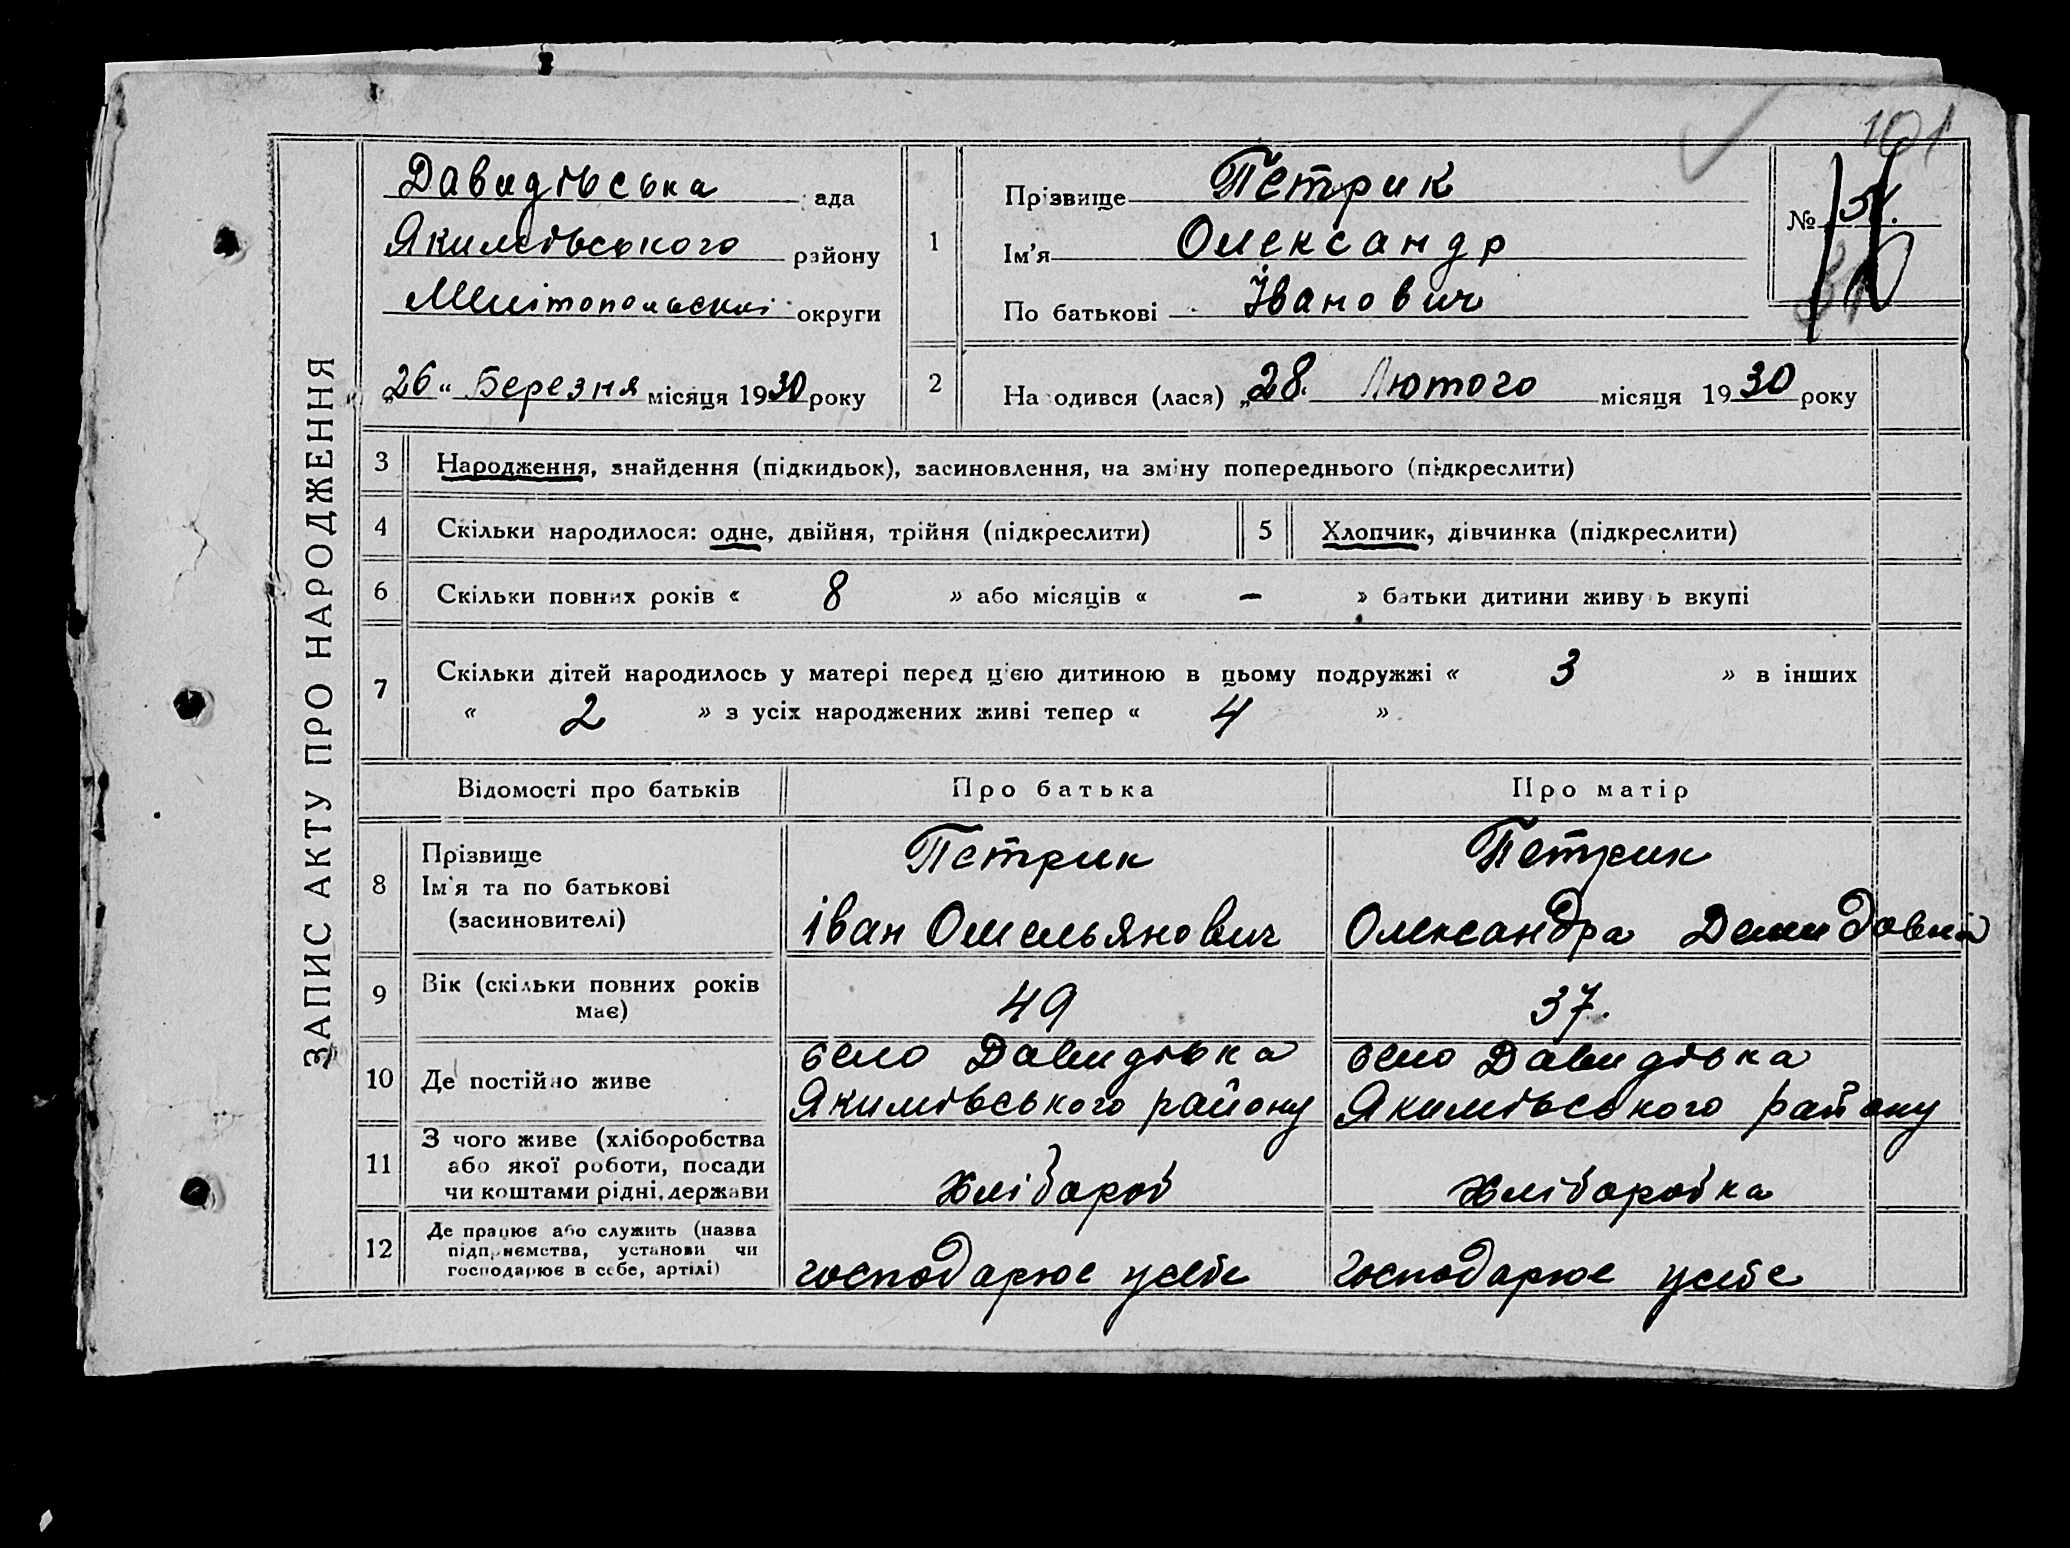 ЗАПИС АКТУ ПРО НАРОДЖЕННЯ
101
Давидівська ада
Якимівського району
Мелітопольської округи
„26“ Березня місяця 1930 року
1
Прізвище Петрик
Ім'я Олександр
По батькові Іванович
№
2
На одився (лася) „28. Лютого місяця 1930 року
3 Народження, знайдення (підкидьок), засиновлення, на зміну попереднього (підкреслити)
4 Скільки народилося: одне, двійня, трійня (підкреслити)
5 Хлопчик, дівчинка (підкреслити)
6 Скільки повних років « 8 » або місяців « – » батьки дитини живу ь вкупі
7 Скільки дітей народилось у матері перед цією дитиною в цьому подружжі « 3 » в інших
« 2 » з усіх народжених живі тепер « 4 »
Відомості про батьків Про батька Про матір
8 Прізвище
Ім'я та по батькові
(засиновителі)
Петрик
Іван Омельянович
Петрик
Олександра Демидовна
9 Вік (скільки повних років
має)
49
37.
10 Де постійно живе
село Давидівка
Якимівського району
село Давидівка
Якимівського району
11 З чого живе (хліборобства
або якої роботи, посади
чи коштами рідні, держави
Хлібароб
Хлібаробка
12 Де працює або служить (назва
підприємства, установи чи
господарює в себе, артілі)
господарює усебе
господарює усебе